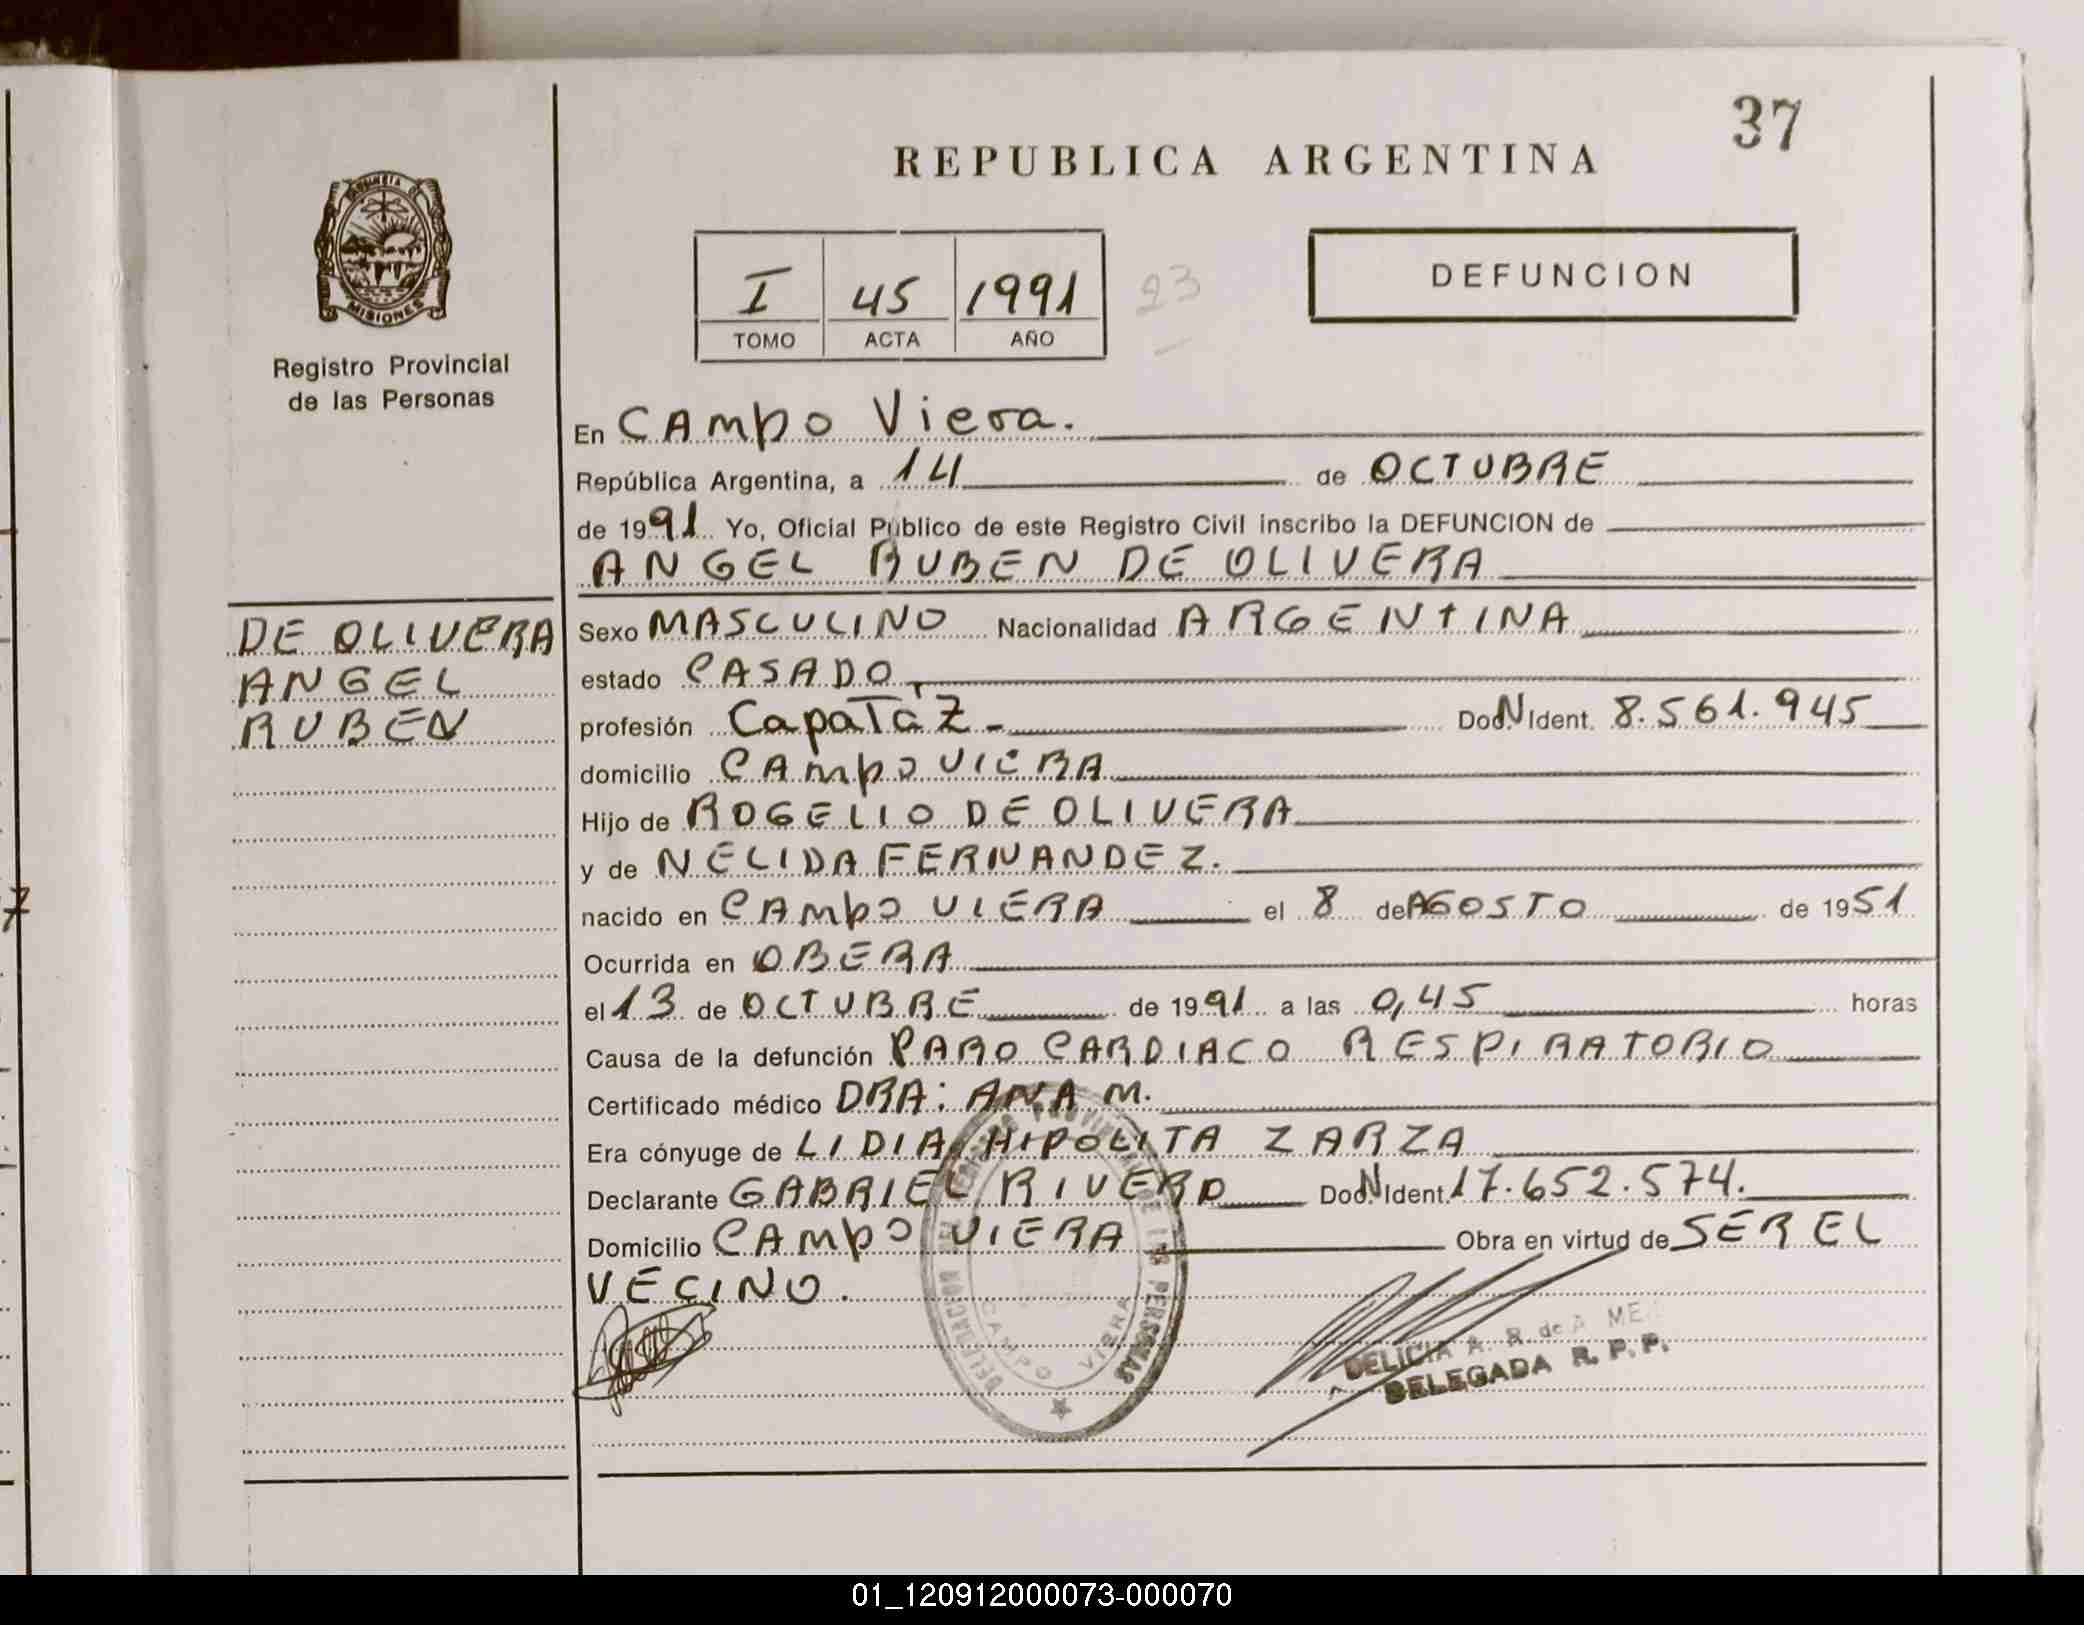 37
REPUBLICA ARGENTINA
PROVINCIA DE
MISIONES
Registro Provincial
de las Personas
I 45 1991
TOMO ACTA AÑO
23
DEFUNCION
En CAmpo Viera.
República Argentina, a 14 de OCTUBRE
de 1991 Yo, Oficial Público de este Registro Civil inscribo la DEFUNCION de
ANGEL RUBEN DE OLIVERA
DE OLIVERA
ANGEL
RUBEN
Sexo MASCULINO Nacionalidad ARGENTINA
estado CASADO
profesión CapaTaZ - Doc. N Ident. 8.561.945
domicilio CAmpo VIERA
Hijo de ROGELIO DE OLIVERA
y de NELIDA FERNANDEZ.
nacido en CAmpo VIERA el 8 de AGOSTO de 1951
Ocurrida en OBERA
el 13 de OCTUBRE de 1991 a las 0,45 horas
Causa de la defunción PARO CARDIACO RESPIRATORIO
Certificado médico DRA: ANA M.
Era cónyuge de LIDIA HIPOLITA ZARZA
Declarante GABRIEL RIVERO Doc. N Ident. 17.652.574.
Domicilio CAmpo VIERA Obra en virtud de SER EL
VECINO.
REGISTRO PROVINCIAL DE LAS PERSONAS
DELEGACION
CAMPO VIERA
DELICIA A. R. de A
DELEGADA R. P. P.
7
01_120912000073-000070